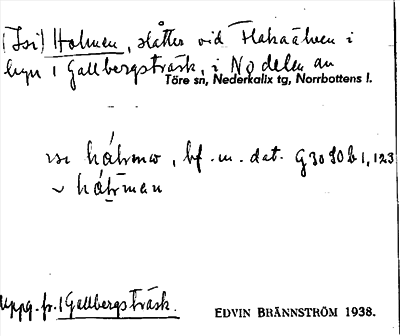 (Isi) Holmen, slåtter vid Flakaälven i
byn 1 Gallbergsträsk, i No delen av
Töre sn, Nederkalix tg, Norrbottens l.
bf. m. dat. G 30 90 b 1, 123
Uppg. fr. 1 Gallbergsträsk.
EDVIN BRÄNNSTRÖM 1938.